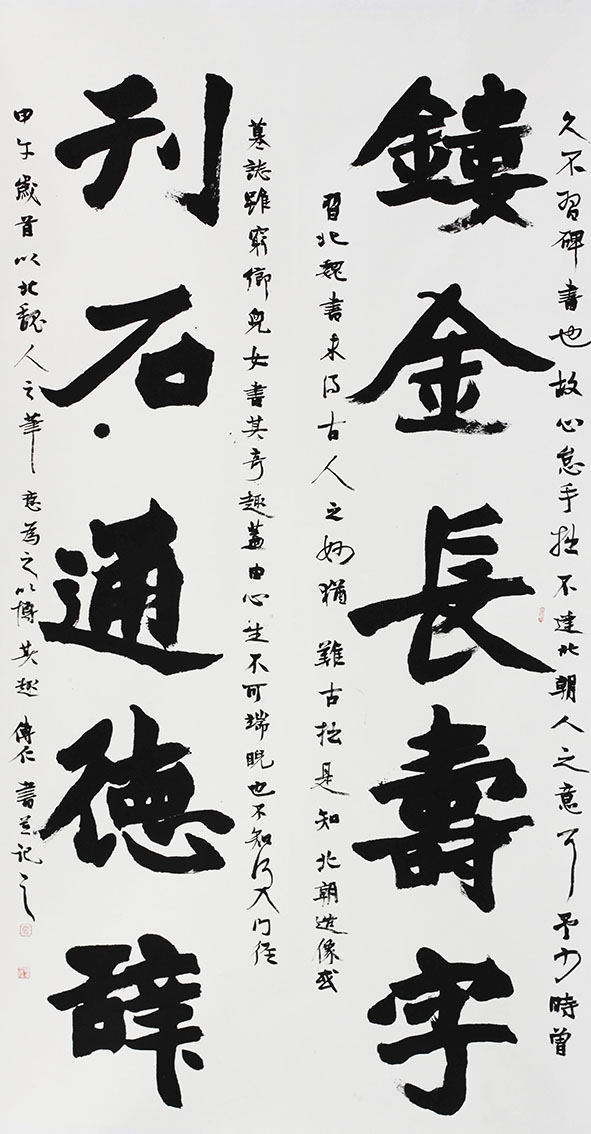 久不習碑書也故心怠手拙不達北朝人之意耳予少時曾
鏤金長壽字
習北魏書未得古人之妙猶難古拙是知北朝造像或
墓誌雖窮鄉兒女書其奇趣蓋由心生不可端睨也不知入門徑
刊石通德辭
甲午歲首以北魏人之筆意為之以博其趣仁書並記之